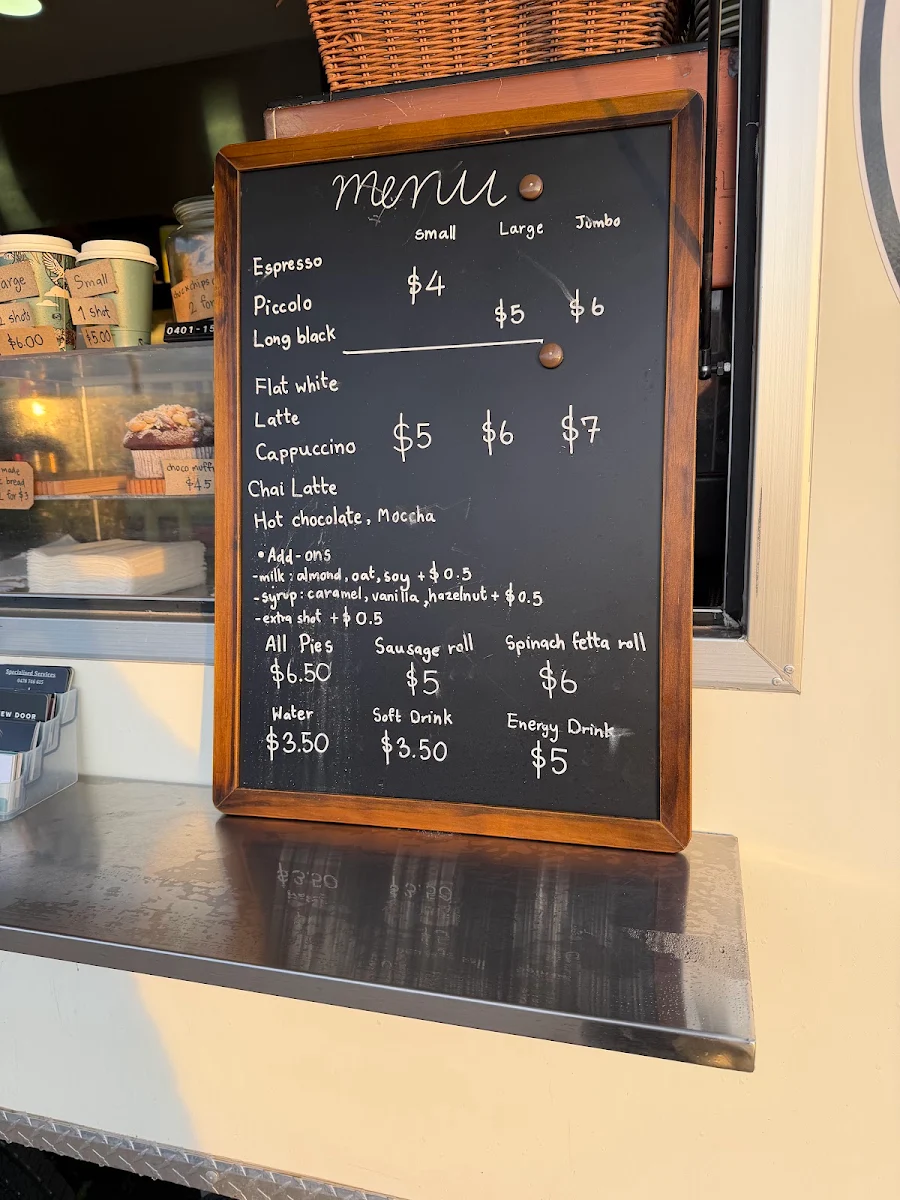 menu
Small Large Jumbo
Espresso
$4
Piccolo
$5 $6
Long black
Flat white
Latte
Cappuccino $5 $6 $7
Chai Latte
Hot chocolate, Moccha
•Add-ons
-milk: almond, oat, soy +$0.5
-syrup: caramel, vanilla, hazelnut + $0.5
-extra shot +$0.5
All Pies Sausage roll Spinach fetta roll
$6.50 $5 $6
Water Soft Drink Energy Drink
$3.50 $3.50 $5
arge
shots
$6.00
Small
1 shot
$5.00
chips
2 for
0401-15
made
bread
for $3
choco muff
$4.5
Specialised Services
EW DOOR